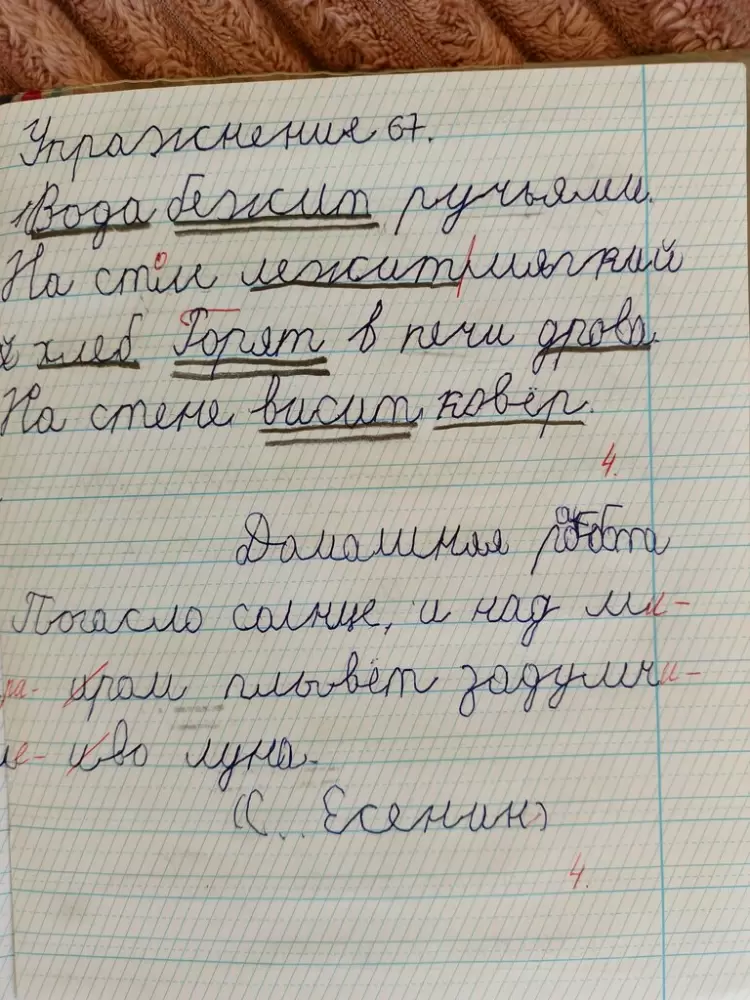 Упражнения 67.
Вода бежит ручьями.
На столе лежит мягкий
хлеб Горят в печи дрова.
На стене висит ковёр.
4.
Домашняя работа
Погасло солнце, и над ми-
иром плывёт задумчи-
иво луна.
(С. Есенин)
4.